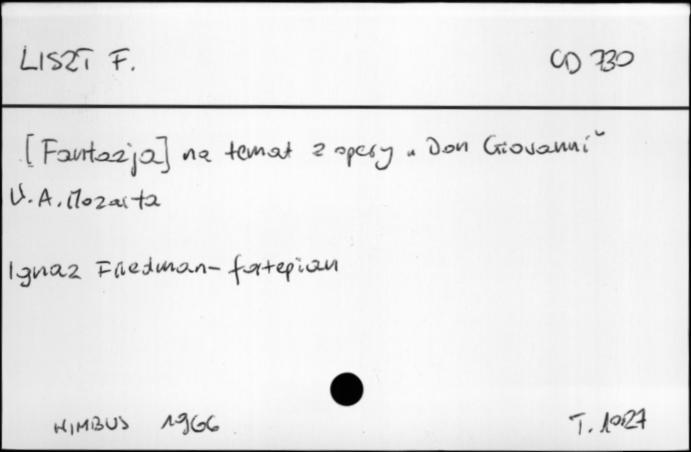 LISZT F. CD 730
[Fantazja] na temat z opery „Don Giovanni”
W.A. Mozarta
Ignaz Friedman - fortepian
NIMBUS 1966 T. 1027